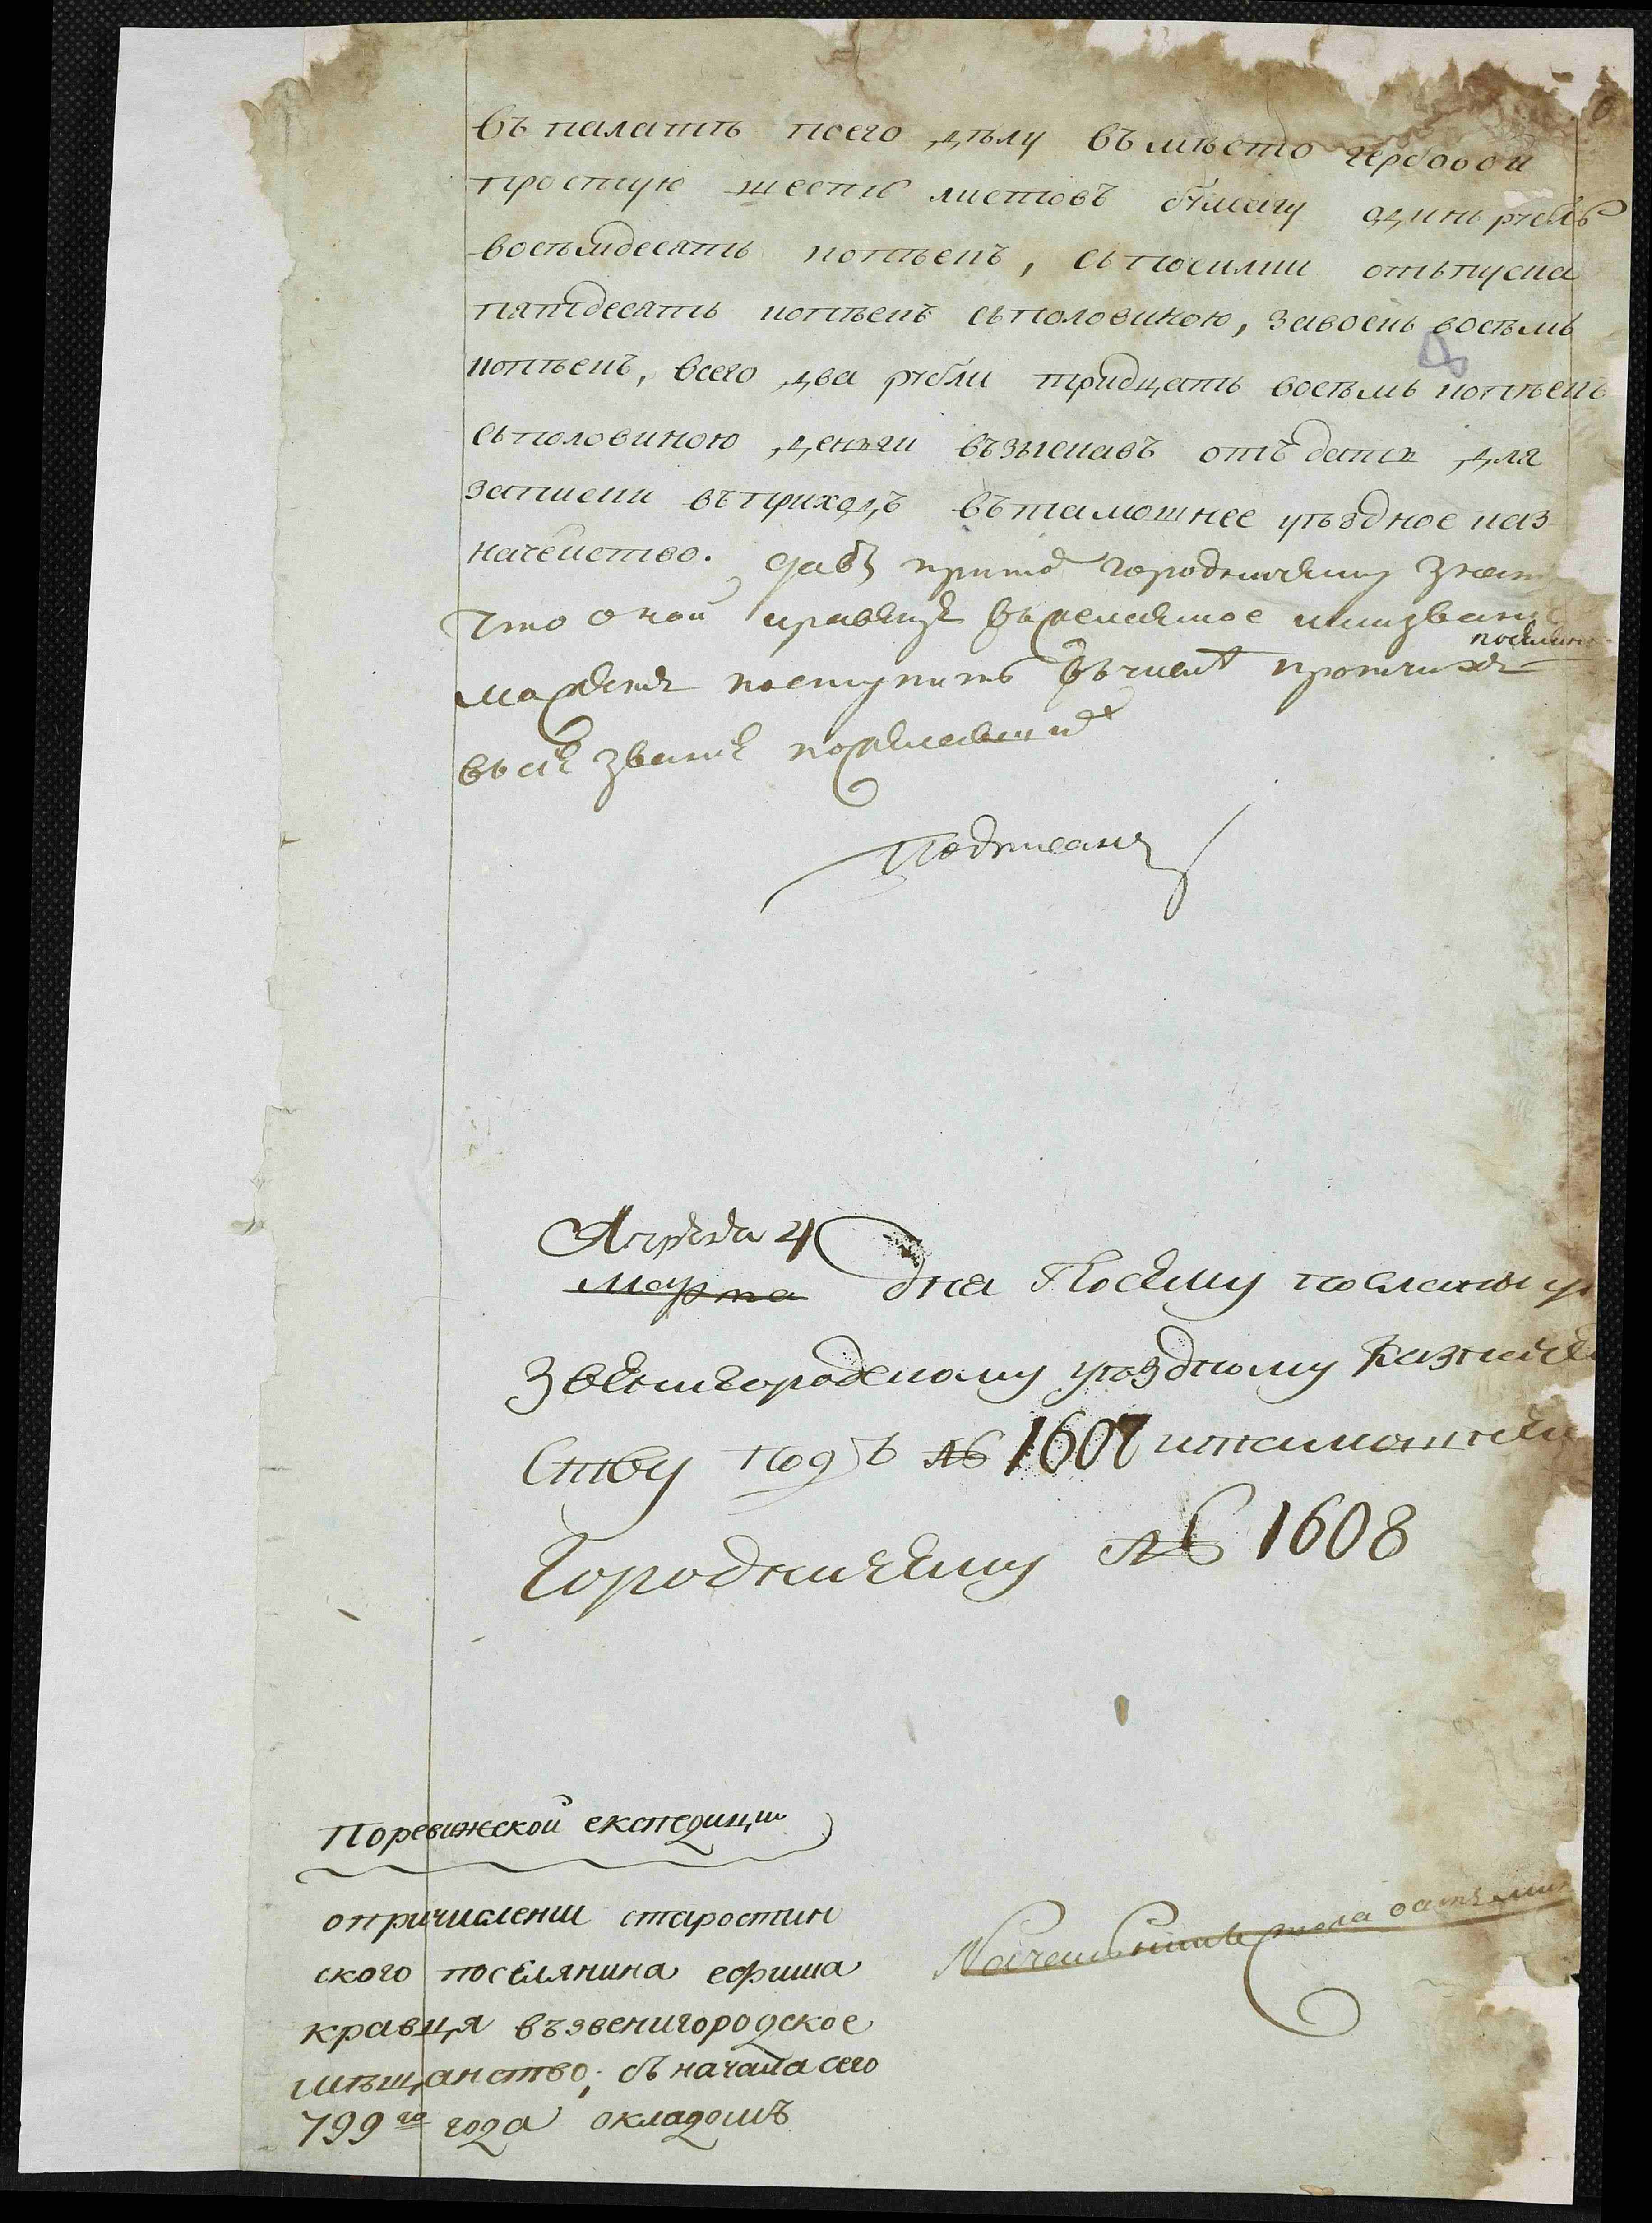 въ палатѣ посего дѣлу въмѣсто гербовой
простую шесть листовъ бумагу одинъ рубль
восемдесятъ копѣекъ, съпосилки отъпуска
пятдесятъ копѣекъ съполовиною, завоскъ восемь
копѣекъ, всего два рубли тридцать восемь копѣекъ
съполовиною денги възыскавъ отъдать для
записки въприходъ вътамошнее уѣздное каз
начейство. дабъ притомъ городничему знат
что оной кравецъ
можетъ поступить въчислѣ протчихъ
въсіе званіе пожелавшихъ
Подписанъ
Апреля 4
Марта дня Посему посланы ук
Звенигородскому уѣздному Казначей
Ству подъ № 1607 итамошнем
Городничему № 1608
Поревижской експедиции
опричислении старостин
ского поселянина ефима
кравця възвенигородское
мѣщанство; съ начала сего
799го года окладомъ